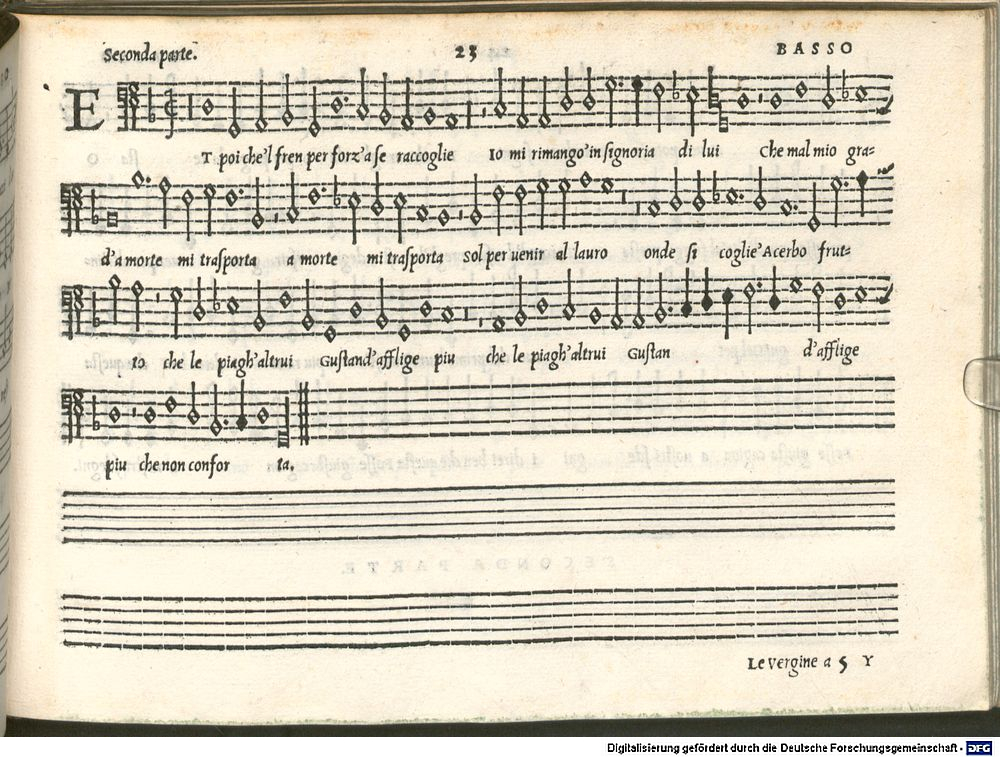 Seconda parte. 23 BASSO
ET poi che'l fren per forz'a se raccoglie Io mi rimango'in signoria di lui Che mal mio gra=
d'a morte mi trasporta a morte mi trasporta Sol per uenir al lauro onde si coglie'Acerbo frut=
to che le piagh'altrui Gustand'afflige piu che le piagh'altrui Gustan d'afflige
piu che non confor ta.
Le vergine a 5 Y
Digitalisierung gefördert durch die Deutsche Forschungsgemeinschaft - DFG